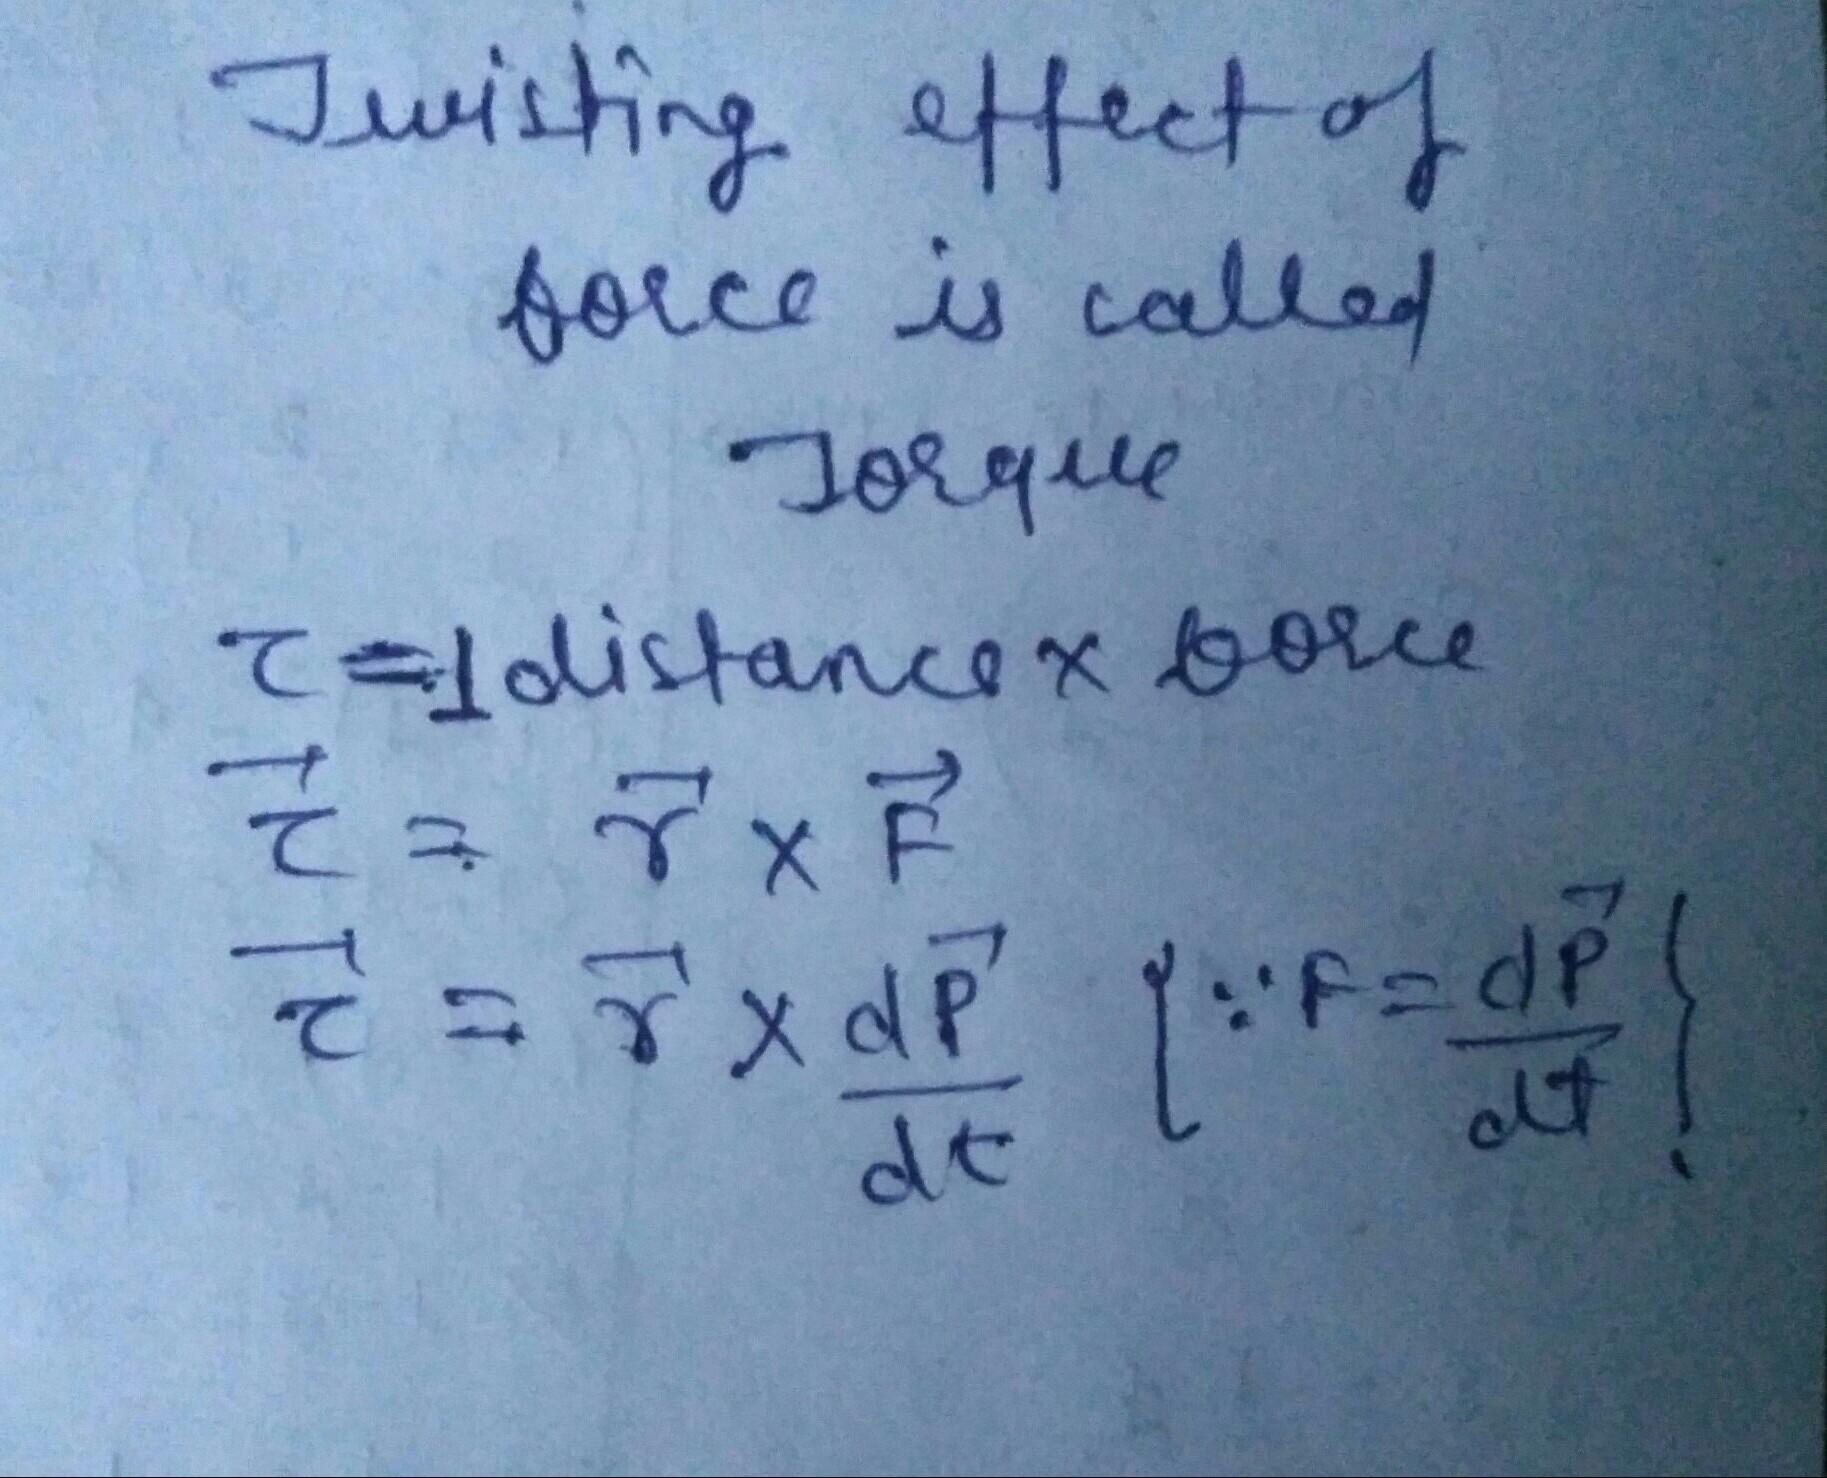 Twisting effect of
force is called
Torque
τ = ⊥ distance × force
τ⃗ = r⃗ × F⃗
τ⃗ = r⃗ × dP⃗/dt {∵ F = dP⃗/dt}